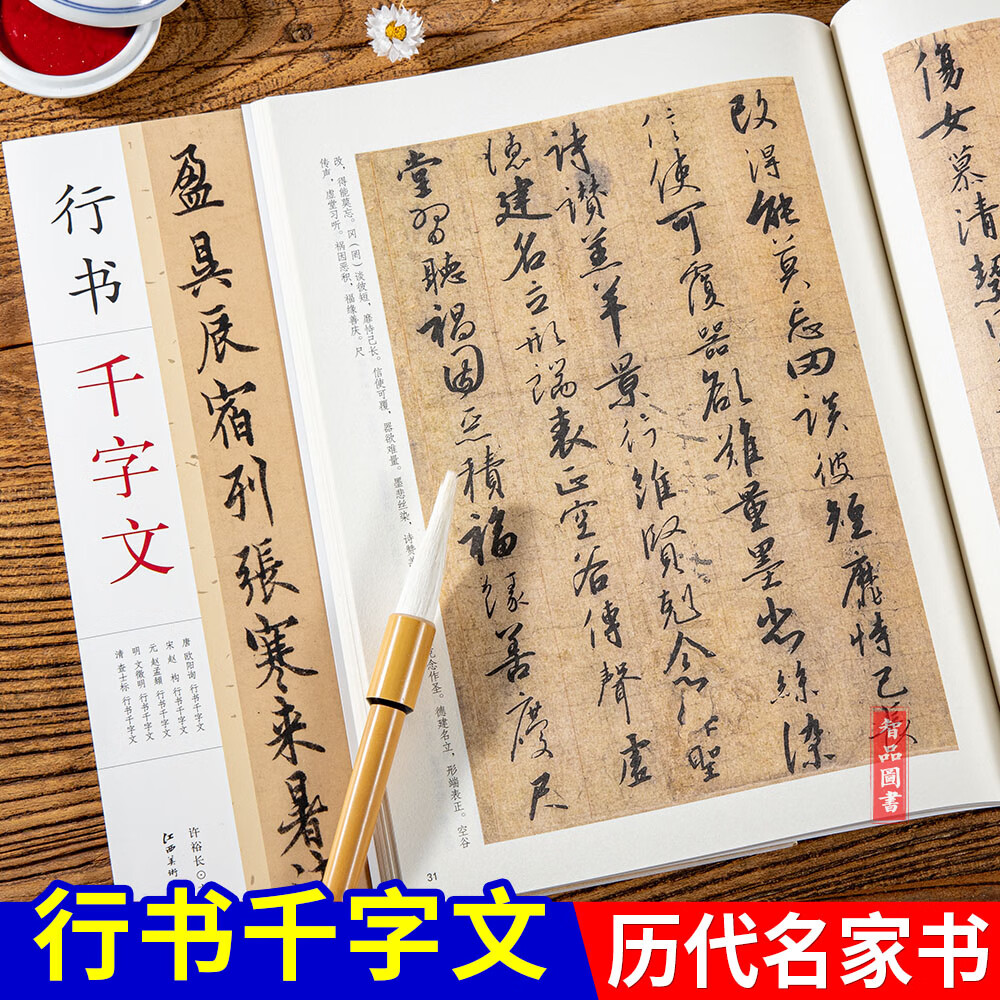 行书
千字文
盈昃辰宿列張寒来暑
唐 欧阳询 行书千字文
宋 赵 构 行书千字文
元 赵孟頫 行书千字文
明 文徵明 行书千字文
清 查士标 行书千字文
许裕长⊙
江西美術
傷女慕清絜
改得能莫忘罔談彼短靡恃己長
信使可覆器欲難量墨悲絲染
詩讚羔羊景行維賢剋念作聖
德建名立形端表正空谷傳聲虛
堂習聽禍因惡積福緣善慶尺
改，得能莫忘。罔（罔）谈彼短，靡恃己长。信使可覆，器欲难量。墨悲丝染，诗赞
克念作圣。德建名立，形端表正。空谷
传声，虚堂习听。祸因恶积，福缘善庆。尺
31
智品圖書
行书千字文
历代名家书